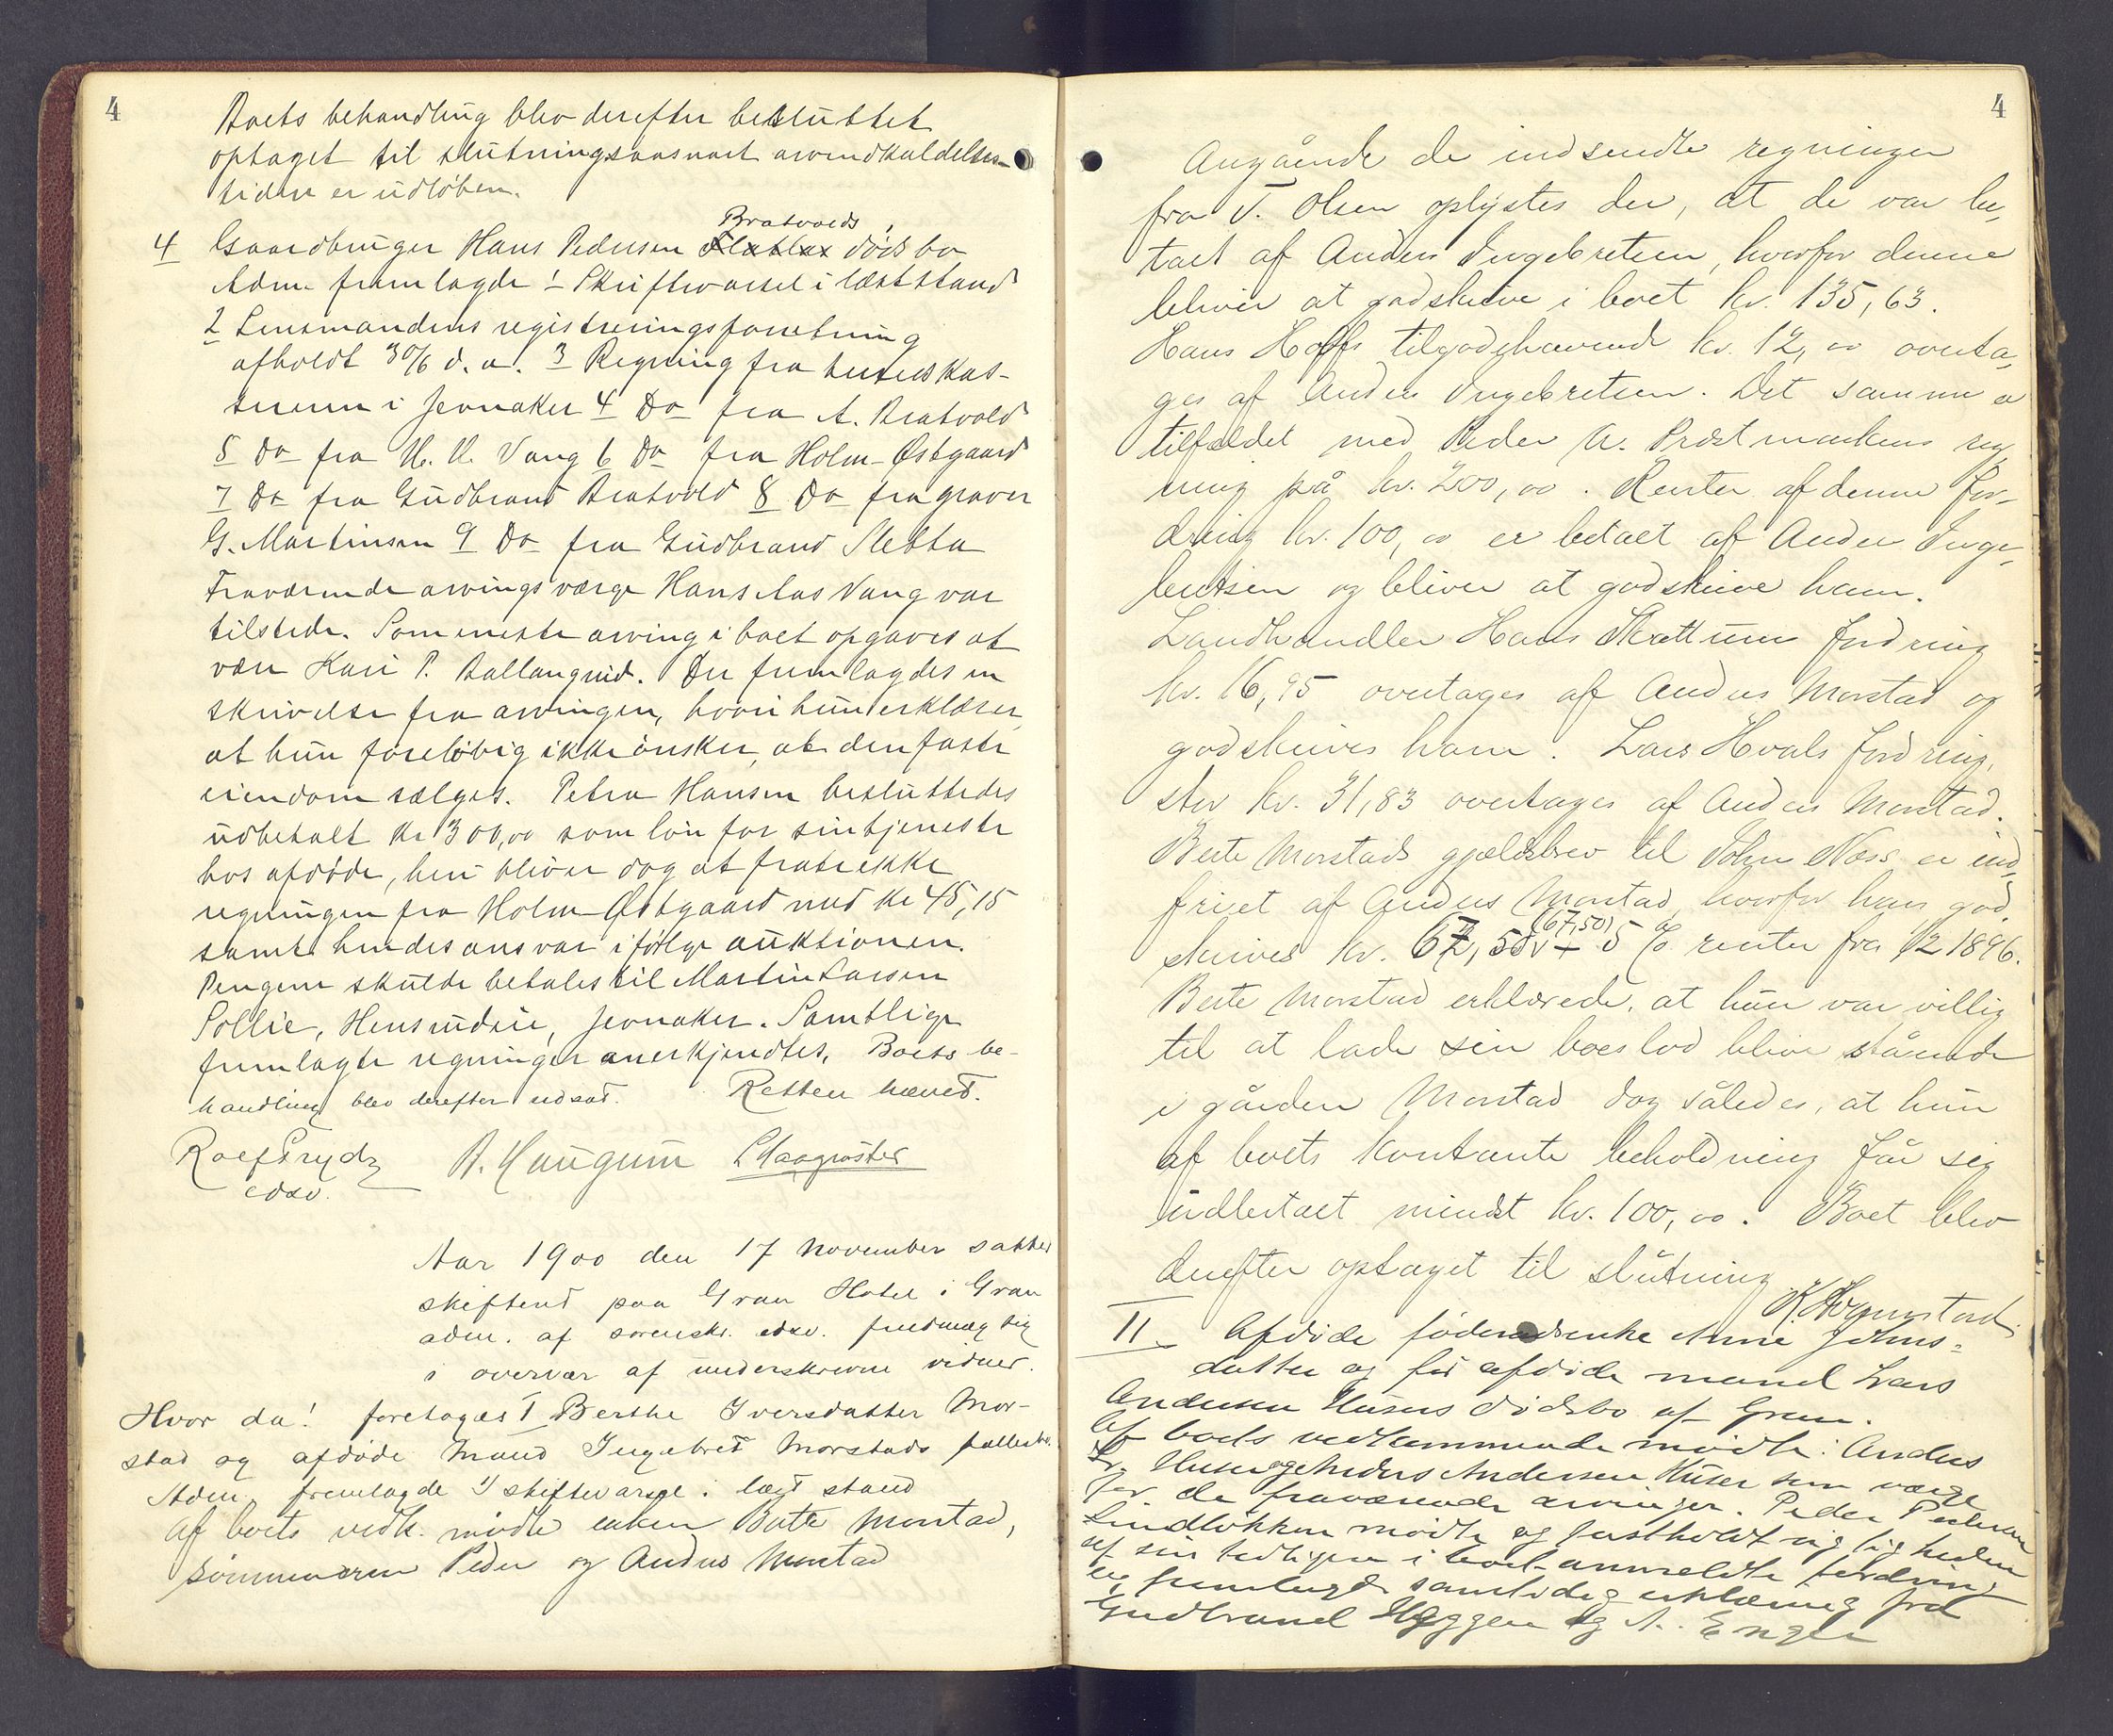 4
Boets behandling blev derefter besluttet
optaget til slutning saasnart arvindkaldelses-
tiden er udløben.
Bratvolds
4 Gaardbruger Hans Pedersen dødsbo
Adm. fremlagde 1 Skiftevarsel i læst stand
2 Lensmandens registreringsforretning
afholdt 30/6 d. a. 3 Regning fra
i Jevnaker 4 Do fra A. Bratvold
5 Do fra H. H. Vang 6 Do fra Holm-Østgaard
7 Do fra Gudbrand Bratvold 8 Do fra graver
G. Martinsen 9 Do fra Gudbrand Sletta
Fraværende arvings værge Hans Aas Vang var
tilstede. Som eneste arving i boet opgaves at
være Kari P. Ballangrud. Der fremlagdes en
skrivelse fra arvingen, hvori hun erklærer,
at hun foreløbig ikke ønsker, at den faste
eiendom sælges. Petra Hansen besluttedes
udbetalt kr 300,00 som løn for sin tjeneste
hos afdøde, heri bliver dog at fratrække
regningen fra Holm-Østgaard med kr 45,15
samt hendes ansvar ifølge auktionen.
Pengene skulde betales til Martin Larsen
Sollie, Hensrudeie, Jevnaker. Samtlige
fremlagte regninger anerkjendtes. Boets be-
handling blev derefter udsat. Retten hævet.
Roef Prydz A. Haugum
edsv.
Aar 1900 den 17 November sattes
skifteret paa Gran Hotel i Gran
adm. af sorenskr. edsv. fuldmægtig
i overvær af underskrevne vidner.
Hvor da! foretages I Berthe Iversdatter Mor-
stad og afdøde Mand Ingebret Morstads fællesbo.
Adm. fremlagde 1) skiftevarsel i læst stand
Af boets vedk. mødte enken Berte Morstad,
sønnerne Peder og Anders Morstad
4
Angående de indsendte regninger
fra T. Olsen oplystes der, at de var be-
talt af Anders Ingebretsen, hvorfor denne
bliver at godskrive i boet kr. 135,63.
Hans Hoffs tilgodehavende kr. 12,00 overta-
ges af Anders Ingebretsen. Det samme er
tilfældet med Peder A. Prestmarkens reg-
ning på kr. 200,00. Renter af denne for-
dring kr. 100,00 er betalt af Anders Inge-
bretsen og bliver at godskrive ham.
Landhandler Hans Skrattum fordring
kr. 16,95 overtages af Anders Morstad og
godskrives ham. Lars Hvals fordring,
stor kr. 31,83 overtages af Anders Morstad.
Berte Morstads gjældsbrev til John Næss er ind-
friet af Anders Morstad, hvorfor han god-
(67,50)
skrives kr. 67,50 + 5 % renter fra 1/2 1896.
Berte Morstad erklærede, at hun var villig
til at lade sin boeslod blive stående
i gården Morstad dog således, at hun
af boets kontante beholdning får sig
udbetalt mindst kr. 100,00. Boet blev
derefter optaget til slutning
II. Afdøde føderådsenke Anne Johns-
datter og før afdøde mand Lars
Andersen Husers dødsbo af Gran.
Af boets vedkommende mødte: Anders
L. Huser Andersen Huser som værge
for de fraværende arvinger. Peder Pedersen
Lindløkken mødte og fastholdt rigtigheden
af sin tidligere i boet anmeldte fordring
og fremlagde samtidig erklæring fra
Gudbrand Heggen og A. Enger